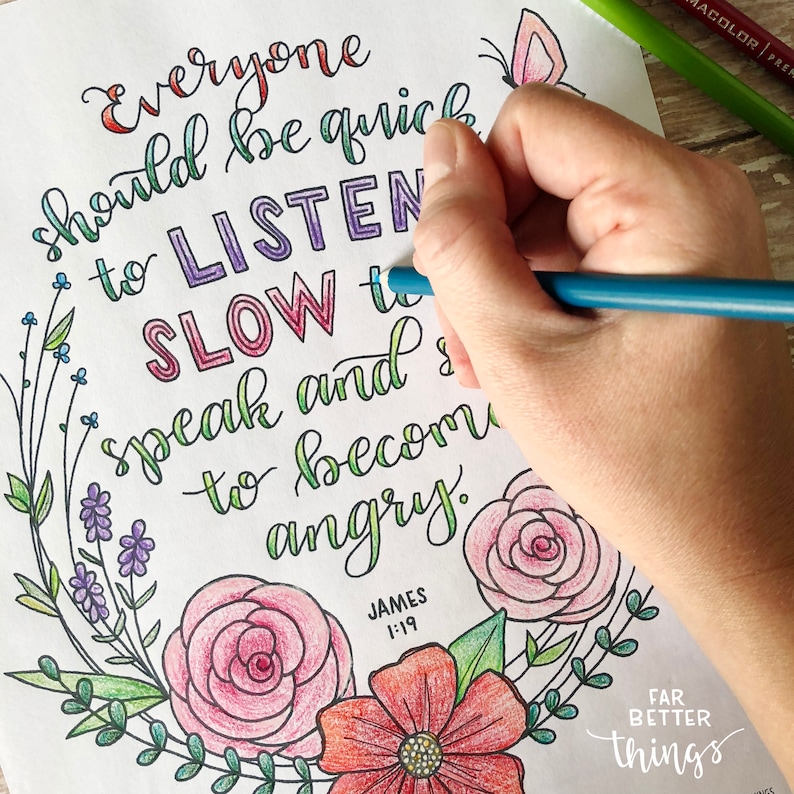 Everyone
should be quick
to LISTEN
SLOW to
speak and s
to become
angry.
JAMES
1:19
FAR
BETTER
things